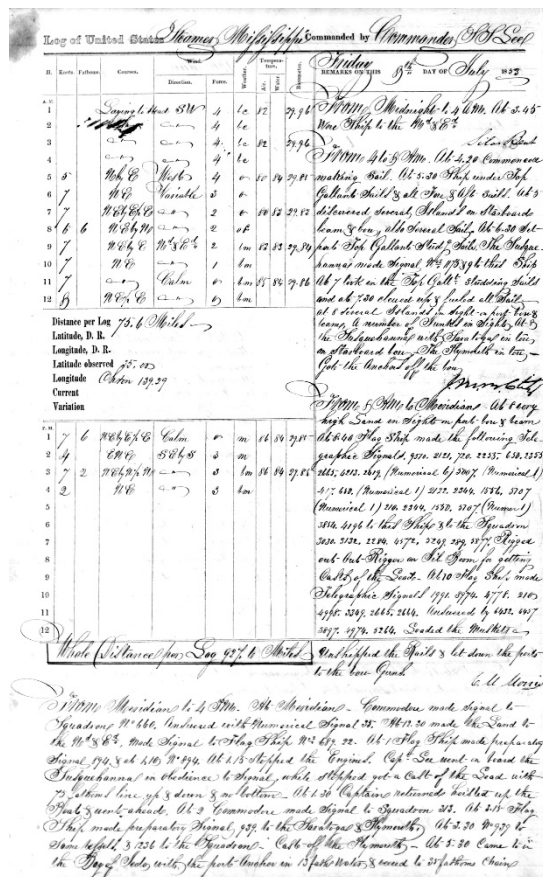 Log of United States Steamer Mississippi Commanded by Commander S. S. Lee
Friday
REMARKS ON THIS 8th DAY OF July 1853
H. Knots Fathoms Courses. Wind. Direction. Force. Weather Temperature, Air. Water. Barometer.
A.M.
1 Laying to Head SW 4 bc 82 29.96
2 4 bc
3 4 bc 82 29.96
4 4 bc
5 5 NEbyE West 4 o 80 84 29.85
6 7 NE Variable 3 o
7 7 NEbyE½E 2 o 80 82 29.82
8 6 6 2
9 7 NEbyE 2 bm 82 83 29.84
10 7 NE 1 bm
11 7 Calm 0 bm 85 84 29.86
12 8 NE½E 0 bm
Distance per Log 75.6 Miles
Latitude, D. R.
Longitude, D. R.
Latitude observed 35.00
Longitude Chron 139.29
Current
Variation
P.M.
1 7 6 NEbyE½E Calm 0 m 86 84 29.85
2 4 ENE SEbyS 3 m
3 7 2 3 bm 86 84 29.85
4 2 NE 3 bm
5
6
7
8
9
10
11
12
Whole Distance per Log 927.6 Miles
From Midnight to 4 AM. At 3.45
Wore Ship to the Nd & Ed
Silas Bent
From 4 to 8 AM. At 4.20 Commenced
making Sail. At 5.30 Ship under Top
Gallant Sails & all Fore & Aft Sails. At 5
discovered several Islands on Starboard
beam & bow, also Several Sail, At 6.30 Set
port Top Gallant Studg Sails. The Susque
hannah made Signal, Nos 1175 & 9 to this Ship
At 7 took in the Top Gallt Studding Sails
and at 7.30 clewed up & furled all Sail
at 8 Several Islands in Sight on port bow &
beam, A number of Junks in Sight, At 8
the Susquehannah with Saratoga in tow
on Starboard bow. The Plymouth in tow
Got the Anchors off the bow
From 8 AM to Meridian. At 8 very
high Land in Sight on port bow & beam
At 8.40 Flag Ship made the following Tele
graphic Signals. 9310. 2121, 720. 2235. 650. 2353
2665, 6213. 2409. (Numerical 6) 3707. (Numerical 1)
417. 658. (Numerical 1) 2122. 2244. 1556. 3707
(Numerical 1) 210. 2244. 1558. 3707. (Numerl 1)
3854. 4196 to this Ship & to the Squadron
3030. 2132. 2284. 4572. 3249. 289. 3877. Rigged
out Out-Rigger on Jib Boom for getting
Casts of the Lead. At 10 Flag Ship made
Telegraphic Signals 1991. 3974. 4778. 210
4998. 3349. 2665. 2664. Answered by 6432. 4457
3897. 4974. 5264. Loaded the Muskets
Unshipped the Rails & let down the ports
to the bow Guns
C. M. Morris
From Meridian to 4 P.M. At Meridian - Commodore made Signal to
Squadron No 660. Answered with Numerical Signal 35. At 12.20 made the Land to
the Nd & Ed, Made Signal to Flag Ship Nos 629. 22. At 1 Flag Ship made preparatory
Signal 194. & at 1.10, No 894. At 1.15 Stopped the Engines. Capn Lee went on board the
Susquehannah in obedience to Signal, while Stopped got a Cast of the Lead with
75 fathoms line, up & down & no bottom. At 1.30 Captain returned hoisted up the
Boat & went ahead. At 2 Commodore made Signal to Squadron 313. At 3.15 Flag
Ship made preparatory Signal, 939, to the Saratoga & Plymouth, At 3.30 No 939 to
Same vessels, & 1236 to the Squadron - Cast off the Plymouth - At 5.30 Came to in
the Bay of Jedo, with the port Anchor in 13 faths Water & veered to 35 fathoms Chain